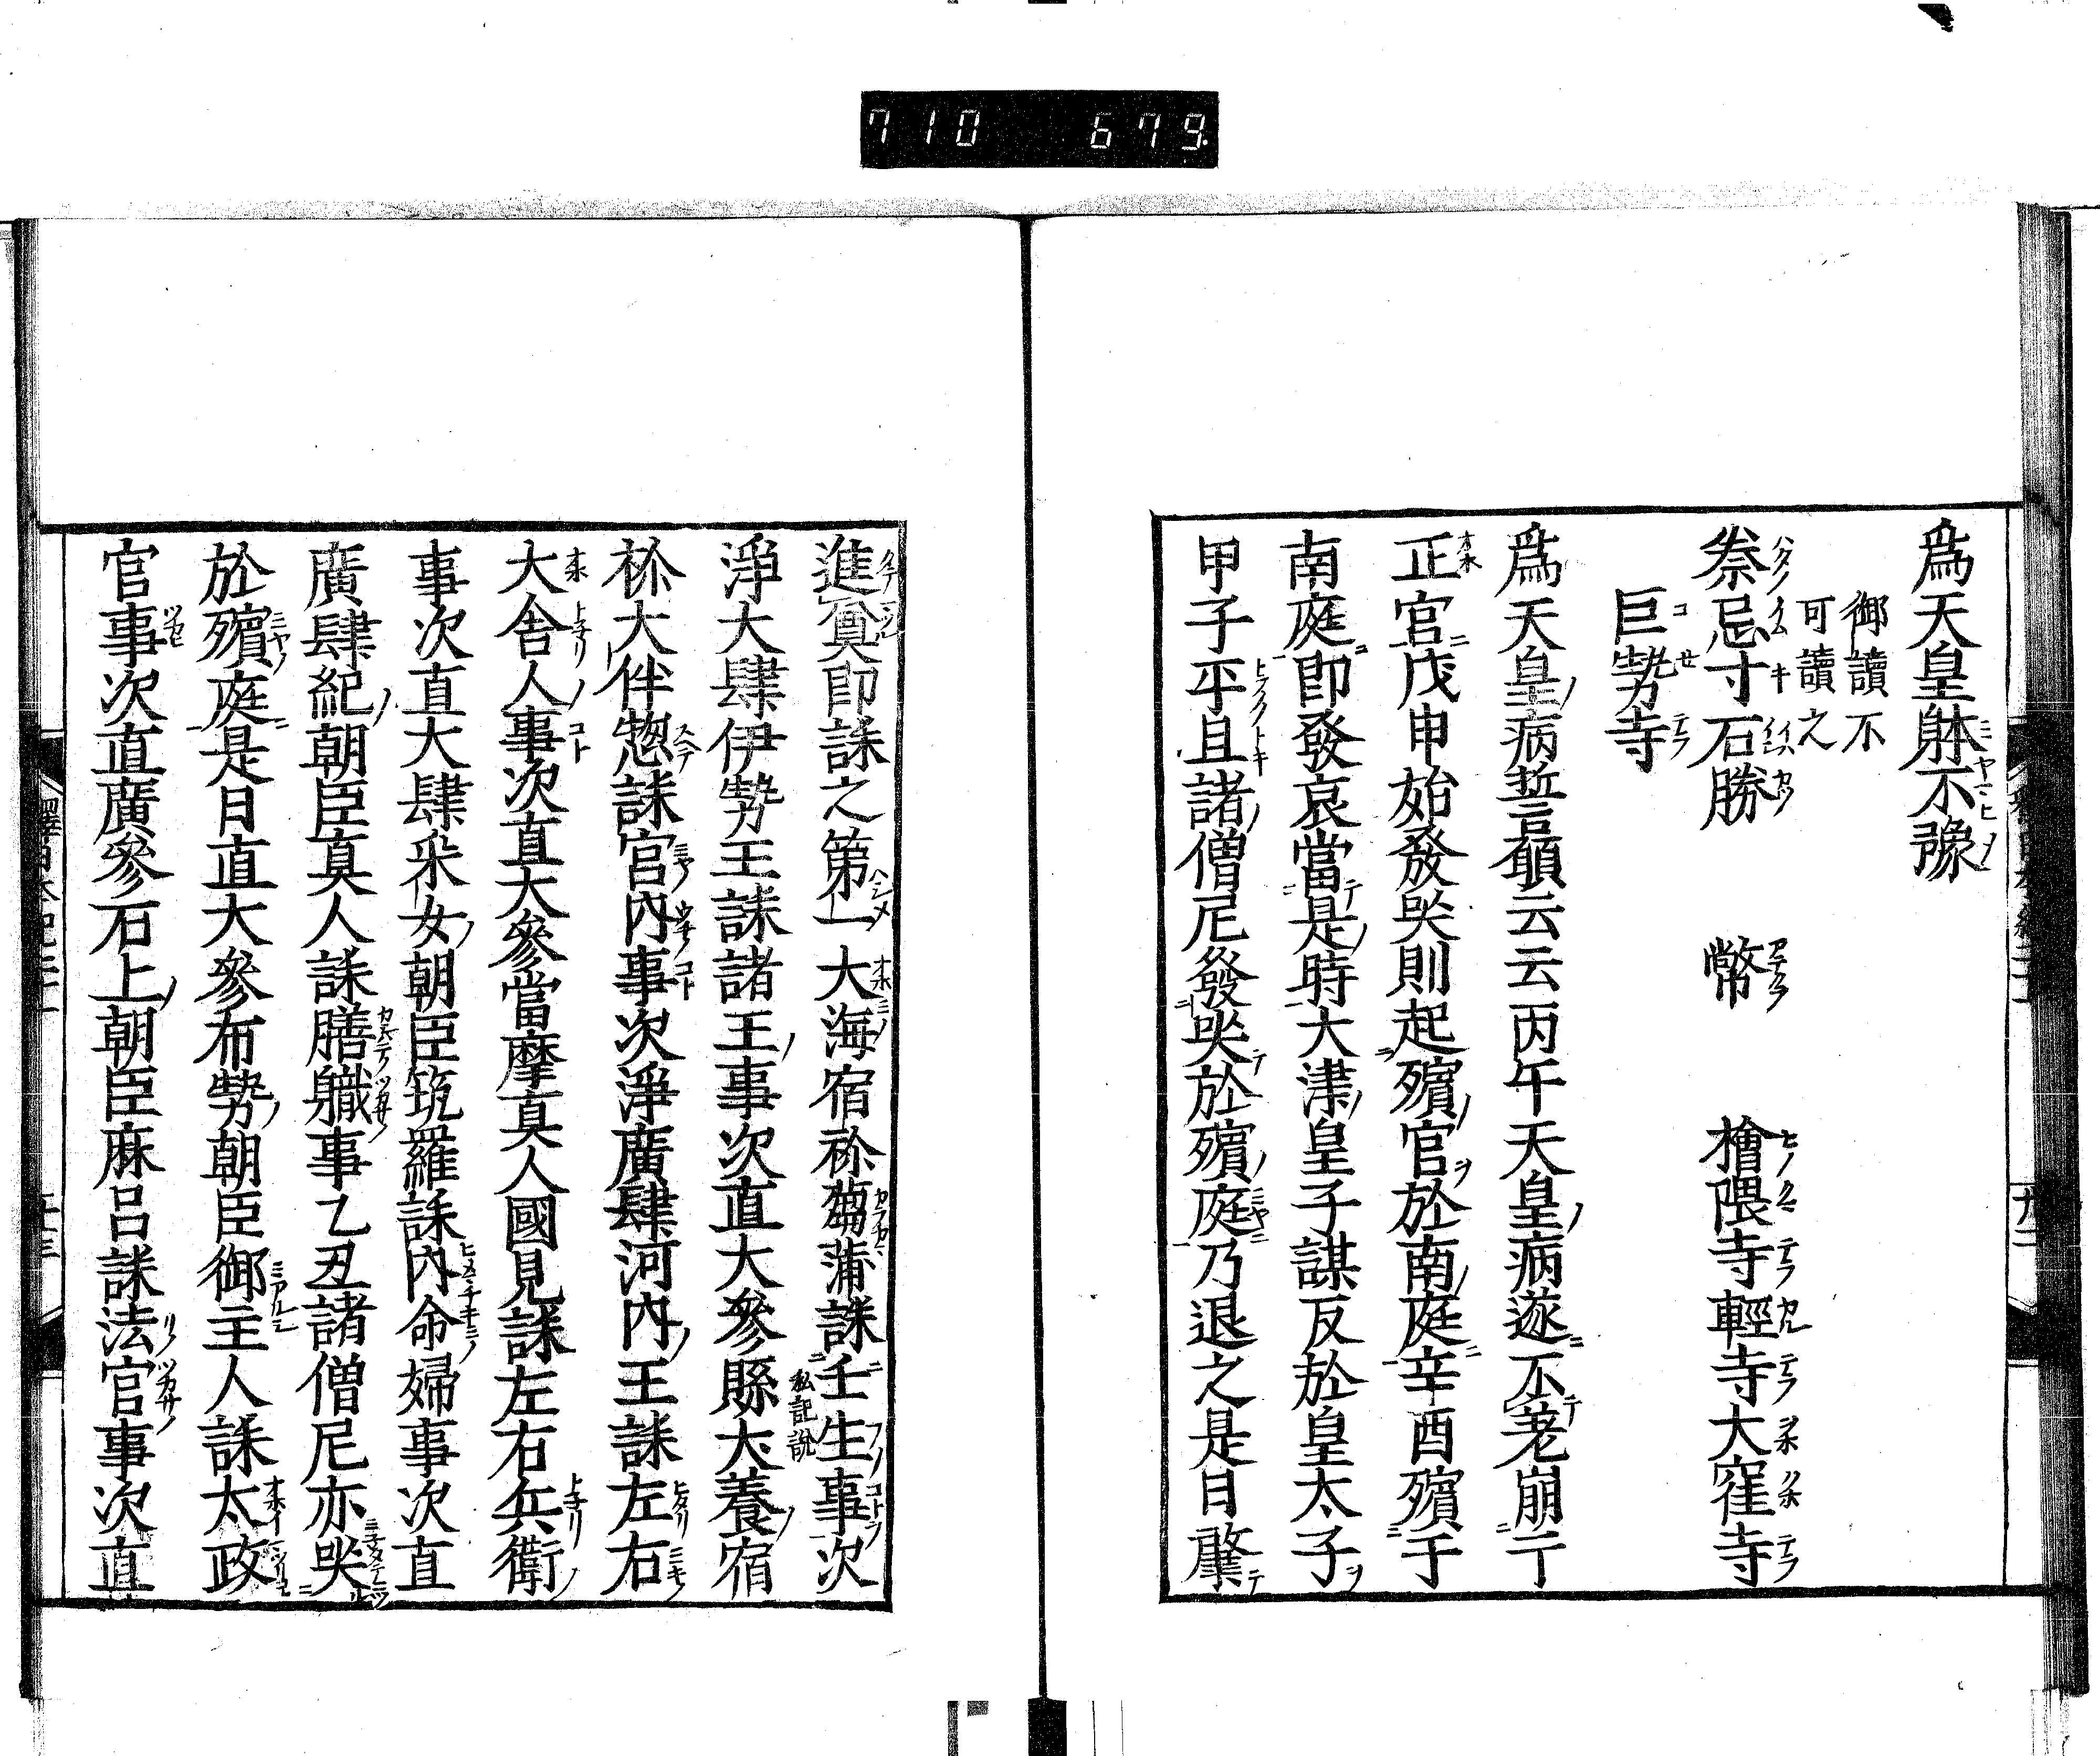 710 679
爲天皇躰不豫
御讀不
可讀之
祭忌寸石勝 幣 檜隈寺輕寺大窪寺
巨勢寺
爲天皇病誓願云云丙午天皇病遂不差崩于
正宮戊申始發哭則起殯宮於南庭辛酉殯于
南庭即發哀當是時大津皇子謀反於皇太子
甲子平旦諸僧尼發哭於殯庭乃退之是日肇
進奠即誄之第一大海宿祢蒭蒲誄壬生事次
淨大肆伊勢王誄諸王事次直大參縣犬養宿
私記說
祢大伴惣誄宮內事次淨廣肆河內王誄左右
大舍人事次直大參當摩真人國見誄左右兵衛
事次直大肆采女朝臣筑羅誄內命婦事次直
廣肆紀朝臣真人誄膳職事乙丑諸僧尼亦哭
於殯庭是日直大參布勢朝臣御主人誄太政
官事次直廣參石上朝臣麻呂誄法官事次直